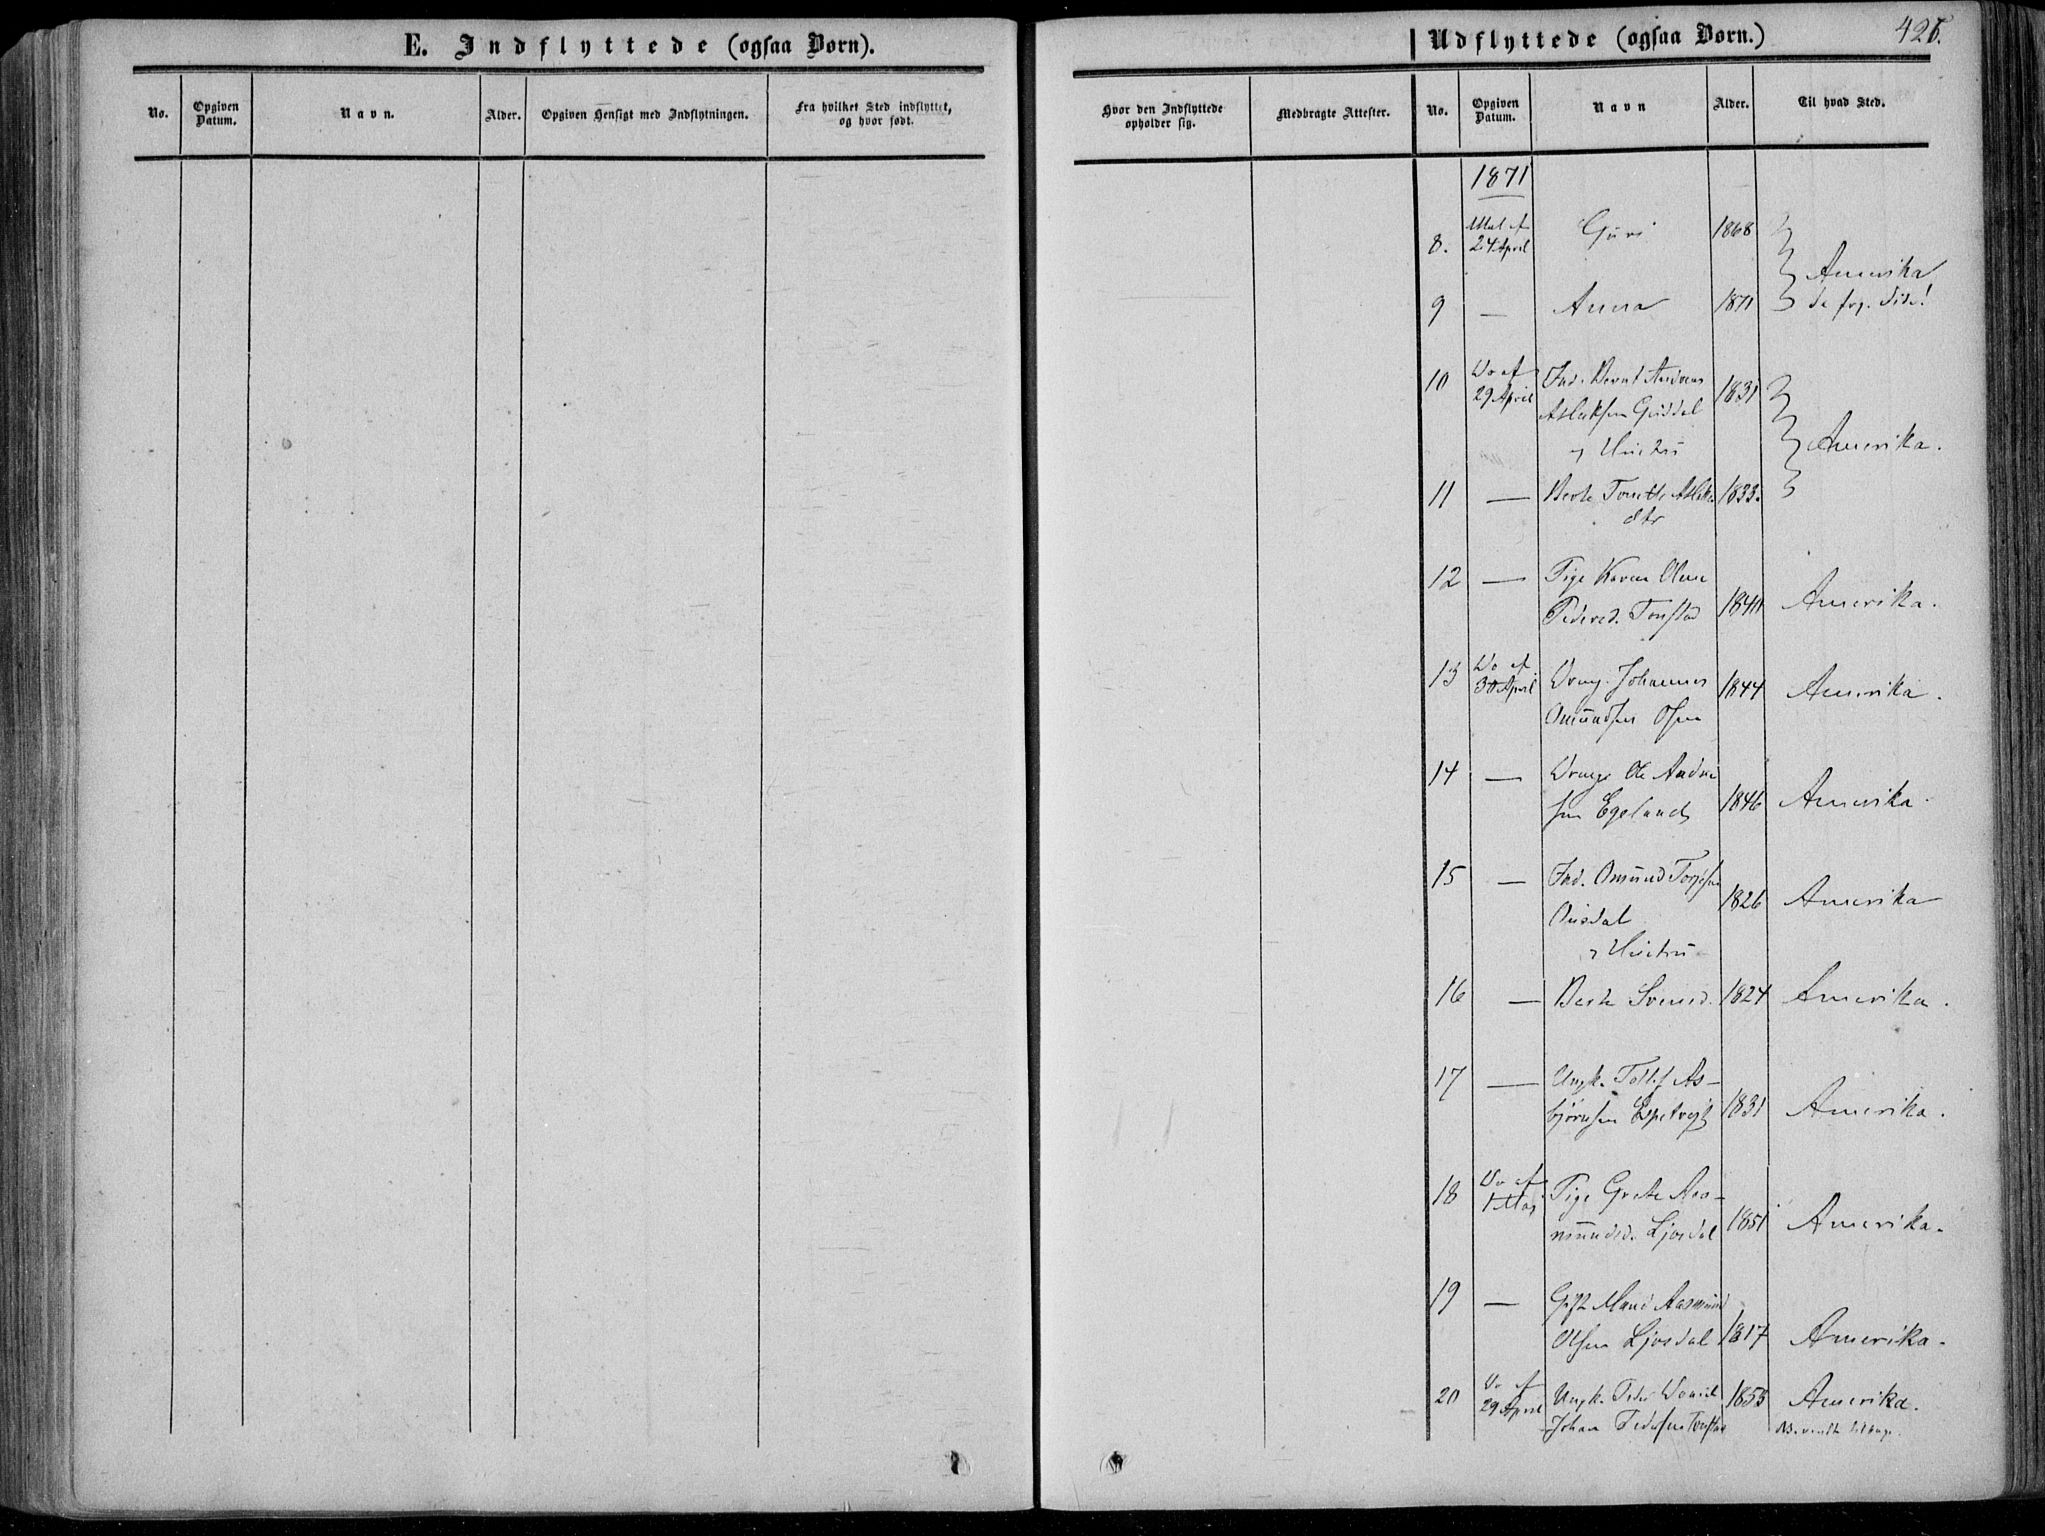 E. Indflyttede (ogsaa Børn).
No.
Opgiven Datum.
Navn.
Alder.
Opgiven Hensigt med Indflytningen.
Fra hvilket Sted indflyttet, og hvor født.
Udflyttede (ogsaa Børn.)
426.
Hvor den Indflyttede opholder sig.
Medbragte Attester.
No.
Opgiven Datum.
Navn
Alder.
Til hvad Sted.
1871
8. 24 April Guri 1868
Amerika
9 — Anna 1871 se frg. Side!
10 Do af 29 April Ind. Bernt Andreas 1831
Aslaksen Guddal
og Hustru
Amerika.
11 — Berte Tonette Aslaks 1833.
dtr
12 — Pige Karen Oline
Pedersd. Tonstad 1841 Amerika.
13 Do af 30 April Dreng Johannes 1844 Amerika.
Omundsen Osen
14 — Dreng Ole Andrea
sen Egeland 1846 Amerika.
15 — Ind. Omund Torjesen
Ousdal 1826 Amerika
og Hustru
16 — Berte Svensd. 1824 Amerika.
17 — Ungk. Tollef As-
bjørnsen Espetvejt 1831 Amerika.
18 Do af 1 Mai Pige Grete Aas-
mundsd. Ljosdal 1851 Amerika.
19 — Gift Mand Aasmund
Olsen Ljosdal 1817 Amerika.
20 Do af 29 April Ungk. Peder Daniel 1853 Amerika.
Johan Pedersen Tonstad
NB. vendte tilbage.